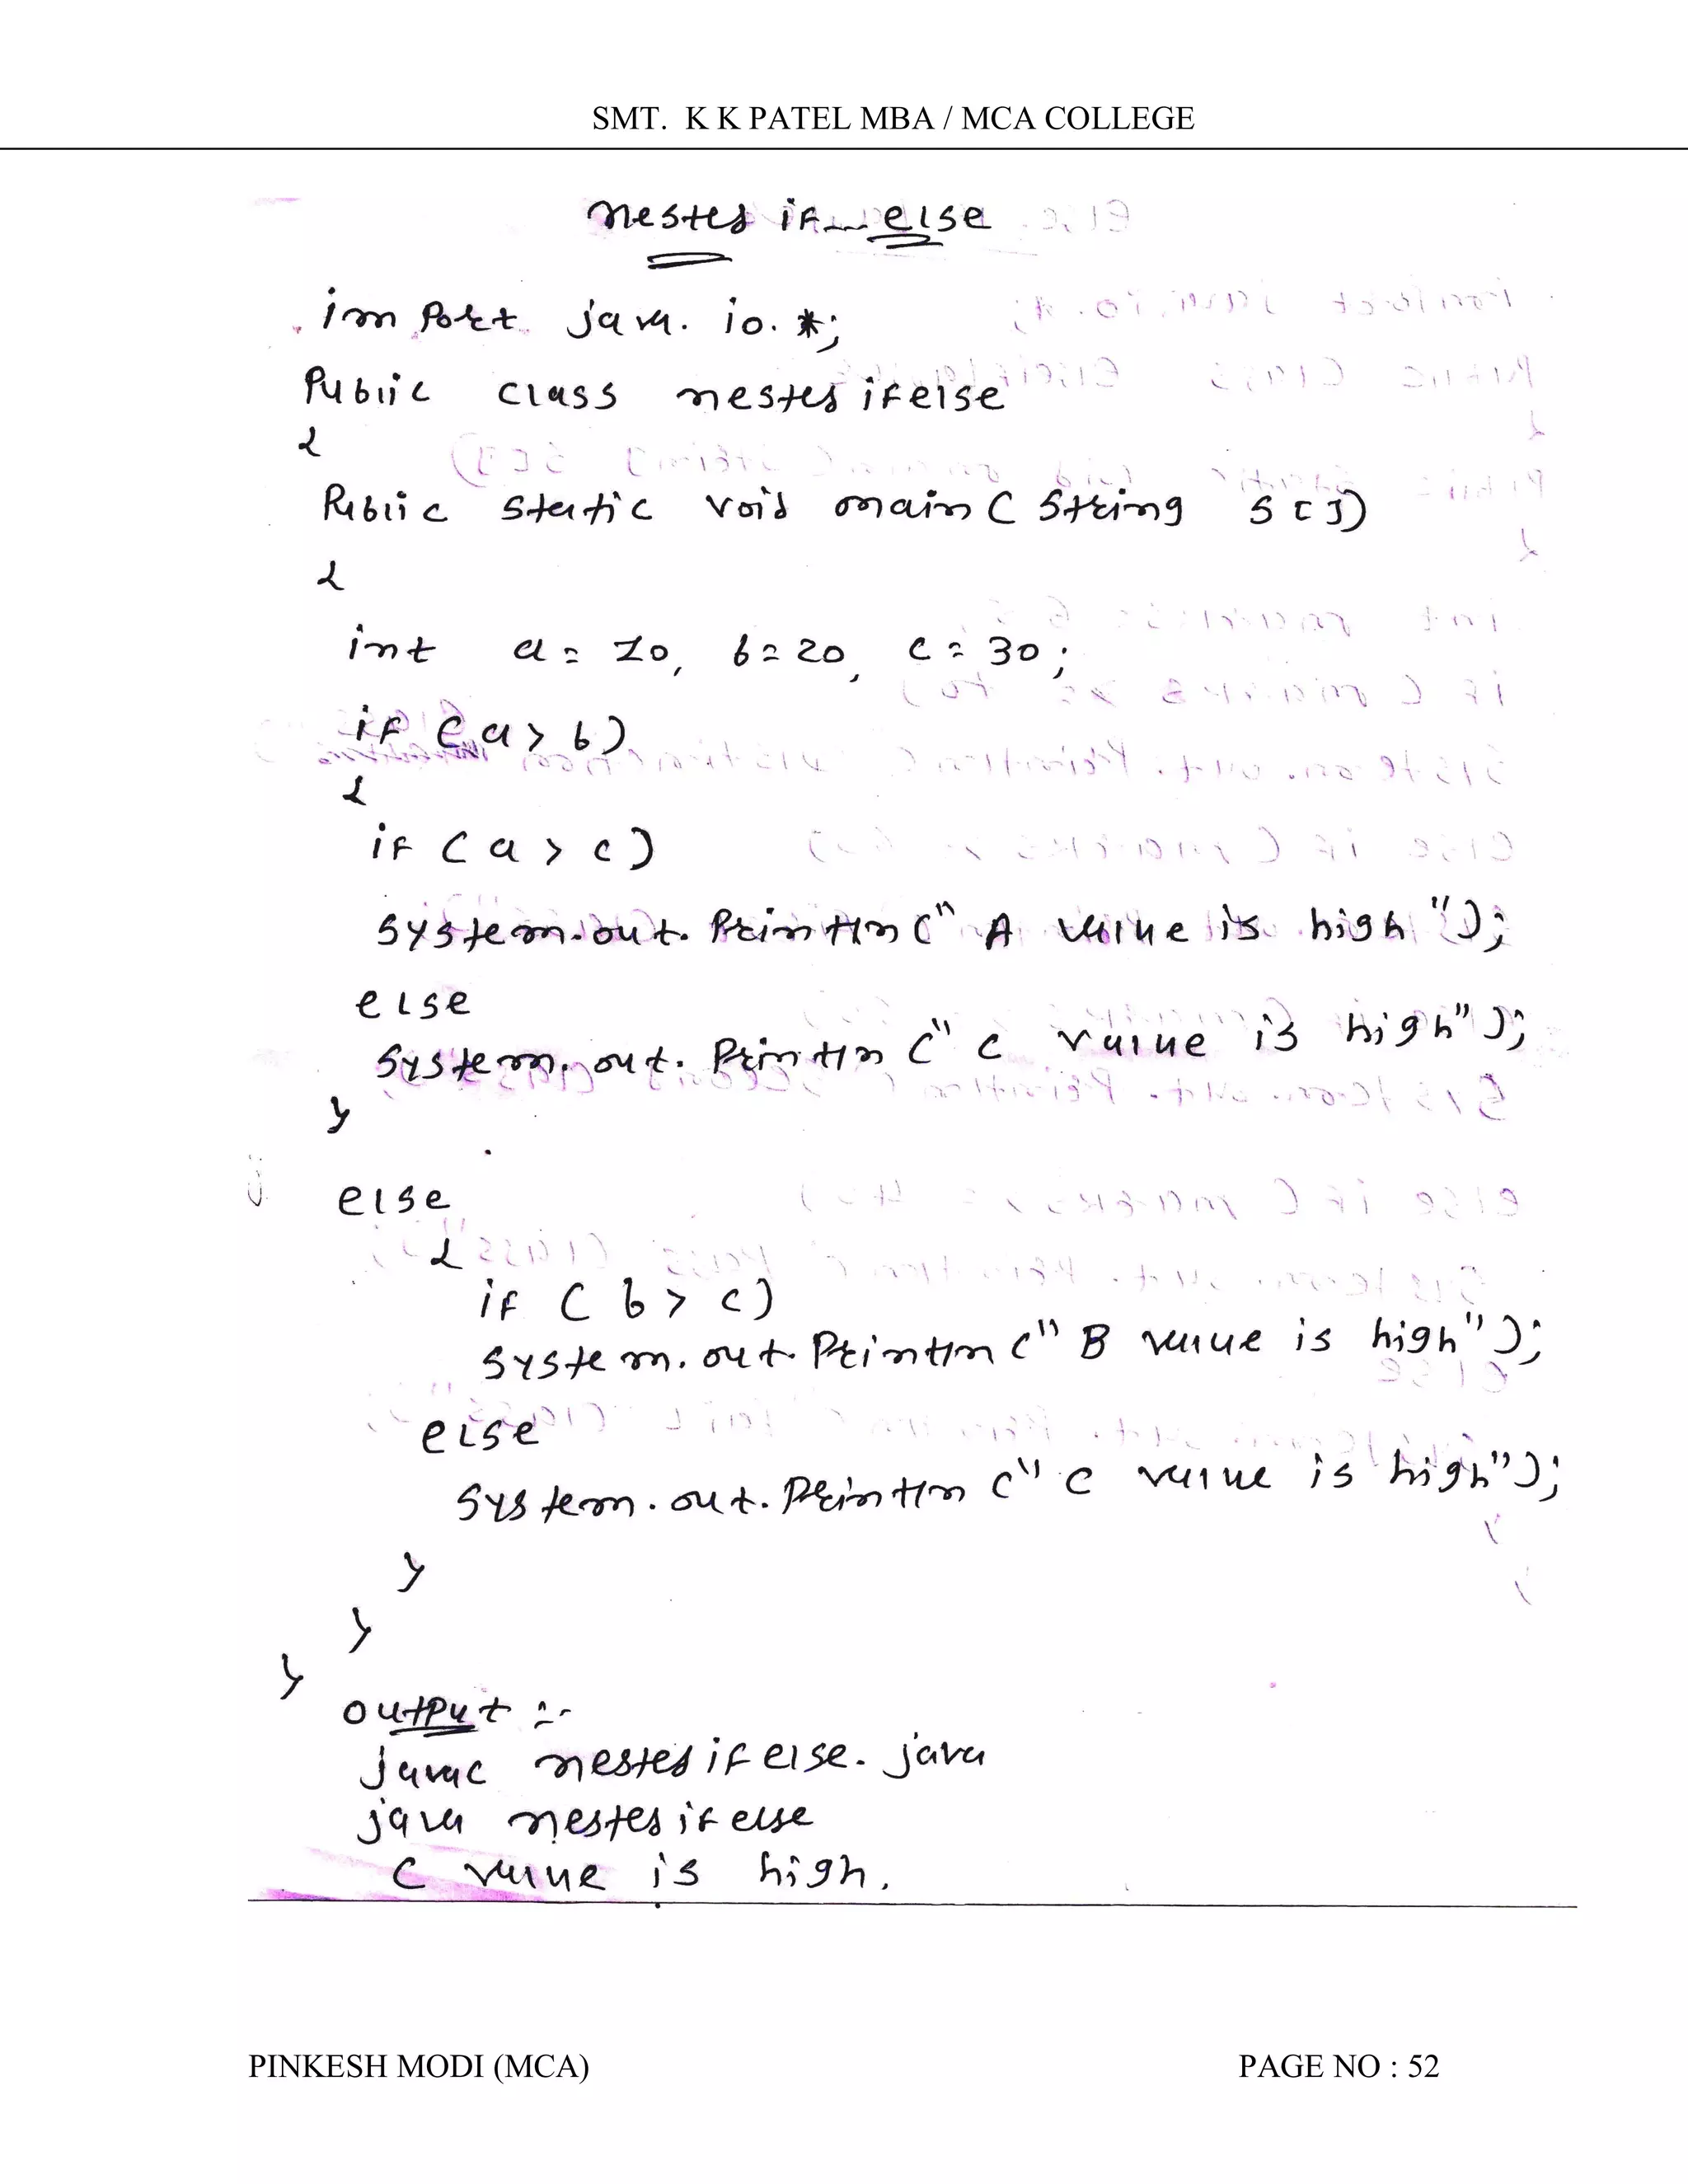 SMT. K K PATEL MBA / MCA COLLEGE
nested if __ else
import java.io.*;
Public class nestedifelse
{
Public static void main(String s[])
{
int a=10, b=20, c=30;
if (a>b)
{
if (a>c)
System.out.Println("A value is high");
else
System.out.Println("C value is high");
}
else
{
if (b>c)
System.out.Println("B value is high");
else
System.out.Println("C value is high");
}
}
}
output :-
javac nestedifelse.java
java nestedifelse
C value is high.
PINKESH MODI (MCA) PAGE NO : 52